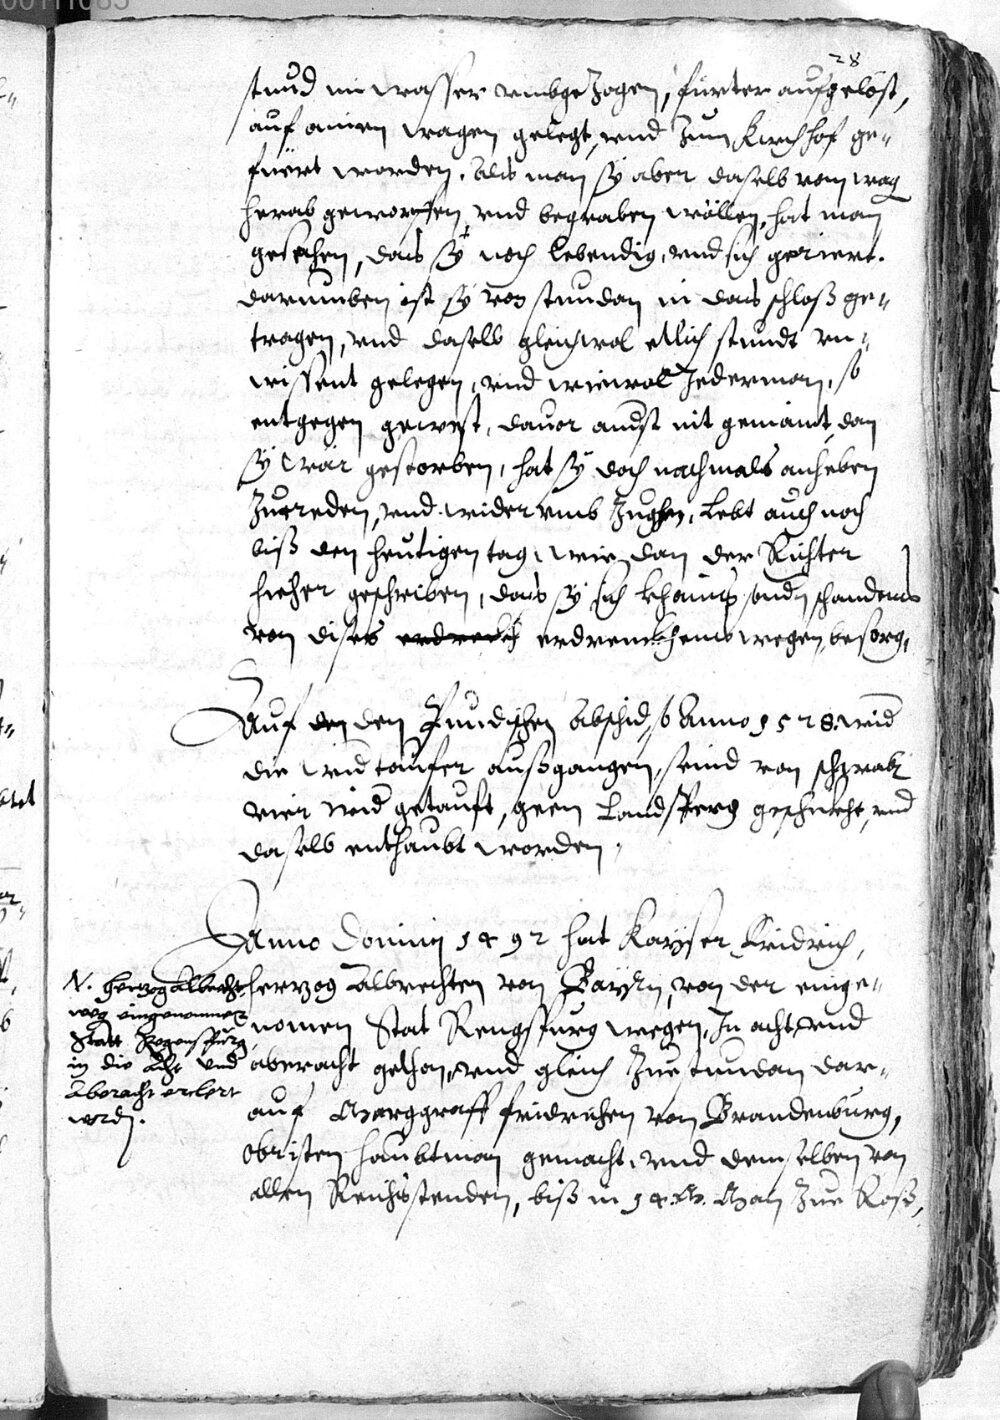 28
stund im wasser umbgezogen, fürter aufgelöst,
auf ainen wagen gelegt, und zum Kirchhof ge„
fuert worden. Als man sÿ aber daselb vom wag
herab geworffen und begraben wöllen, hat man
gesechen, das sÿ noch lebendig, und sich geriert.
Darumben ist sÿ von stundan in das schloß ge„
tragen, und daselb gleichwol etlich stundt un„
wissent gelegen, und wiewol Jederman, so
entgegen gewest, davor anderst nit gemaint, dan
sÿ wär gestorben, hat sÿ doch nachmals anheben
zureden, und widerumb zugehen, lebt auch noch
biß den heutigen tag, wie dan der Richter
hieher geschriben, das sÿ sich khains sondern schadens
von dises erdrenckhens wegen, besorg.
Auf den den Pundischen abschid, so Anno 1528. wider
die widtaufer außgangen, seind von schwabn
vier wider getauft, geen Landsperg geschickht, und
daselb enthaubt worden.
Anno Dominj 1492 hat Kayser Fridrich,
herzog Albrechten von Bayrn, von der einge„
nomen Stat Rengspurg wegen, In acht, und
aberacht gethon, und gleich zuestundan dar„
auf Marggraff fridrichen von Brandenburg,
obristen haubtman gemacht, und demselben von
allen Reichsstenden, biß in 14.M. Man zue Roß,
N. herzog Albrecht
weg eingenommer
Statt Regenspurg
in die Acht und
Aberacht erclert
wordn.